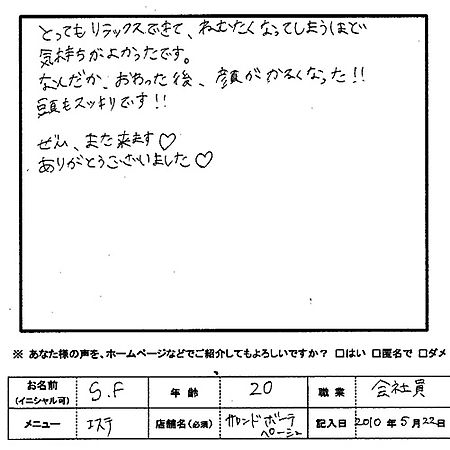 とってもリラックスできて、ねむたくなってしまうほど
気持ちがよかったです。
なんだか、おわった後、顔がかるくなった!!
頭もスッキリです!!
ぜひ、また来ます♡
ありがとうございました♡
※ あなた様の声を、ホームページなどでご紹介してもよろしいですか? □はい □匿名で □ダメ
お名前(イニシャル可) S.F 年齢 20 職業 会社員
メニュー エステ 店舗名(必須) サロンドボーテ ペーシュ 記入日 2010年5月22日